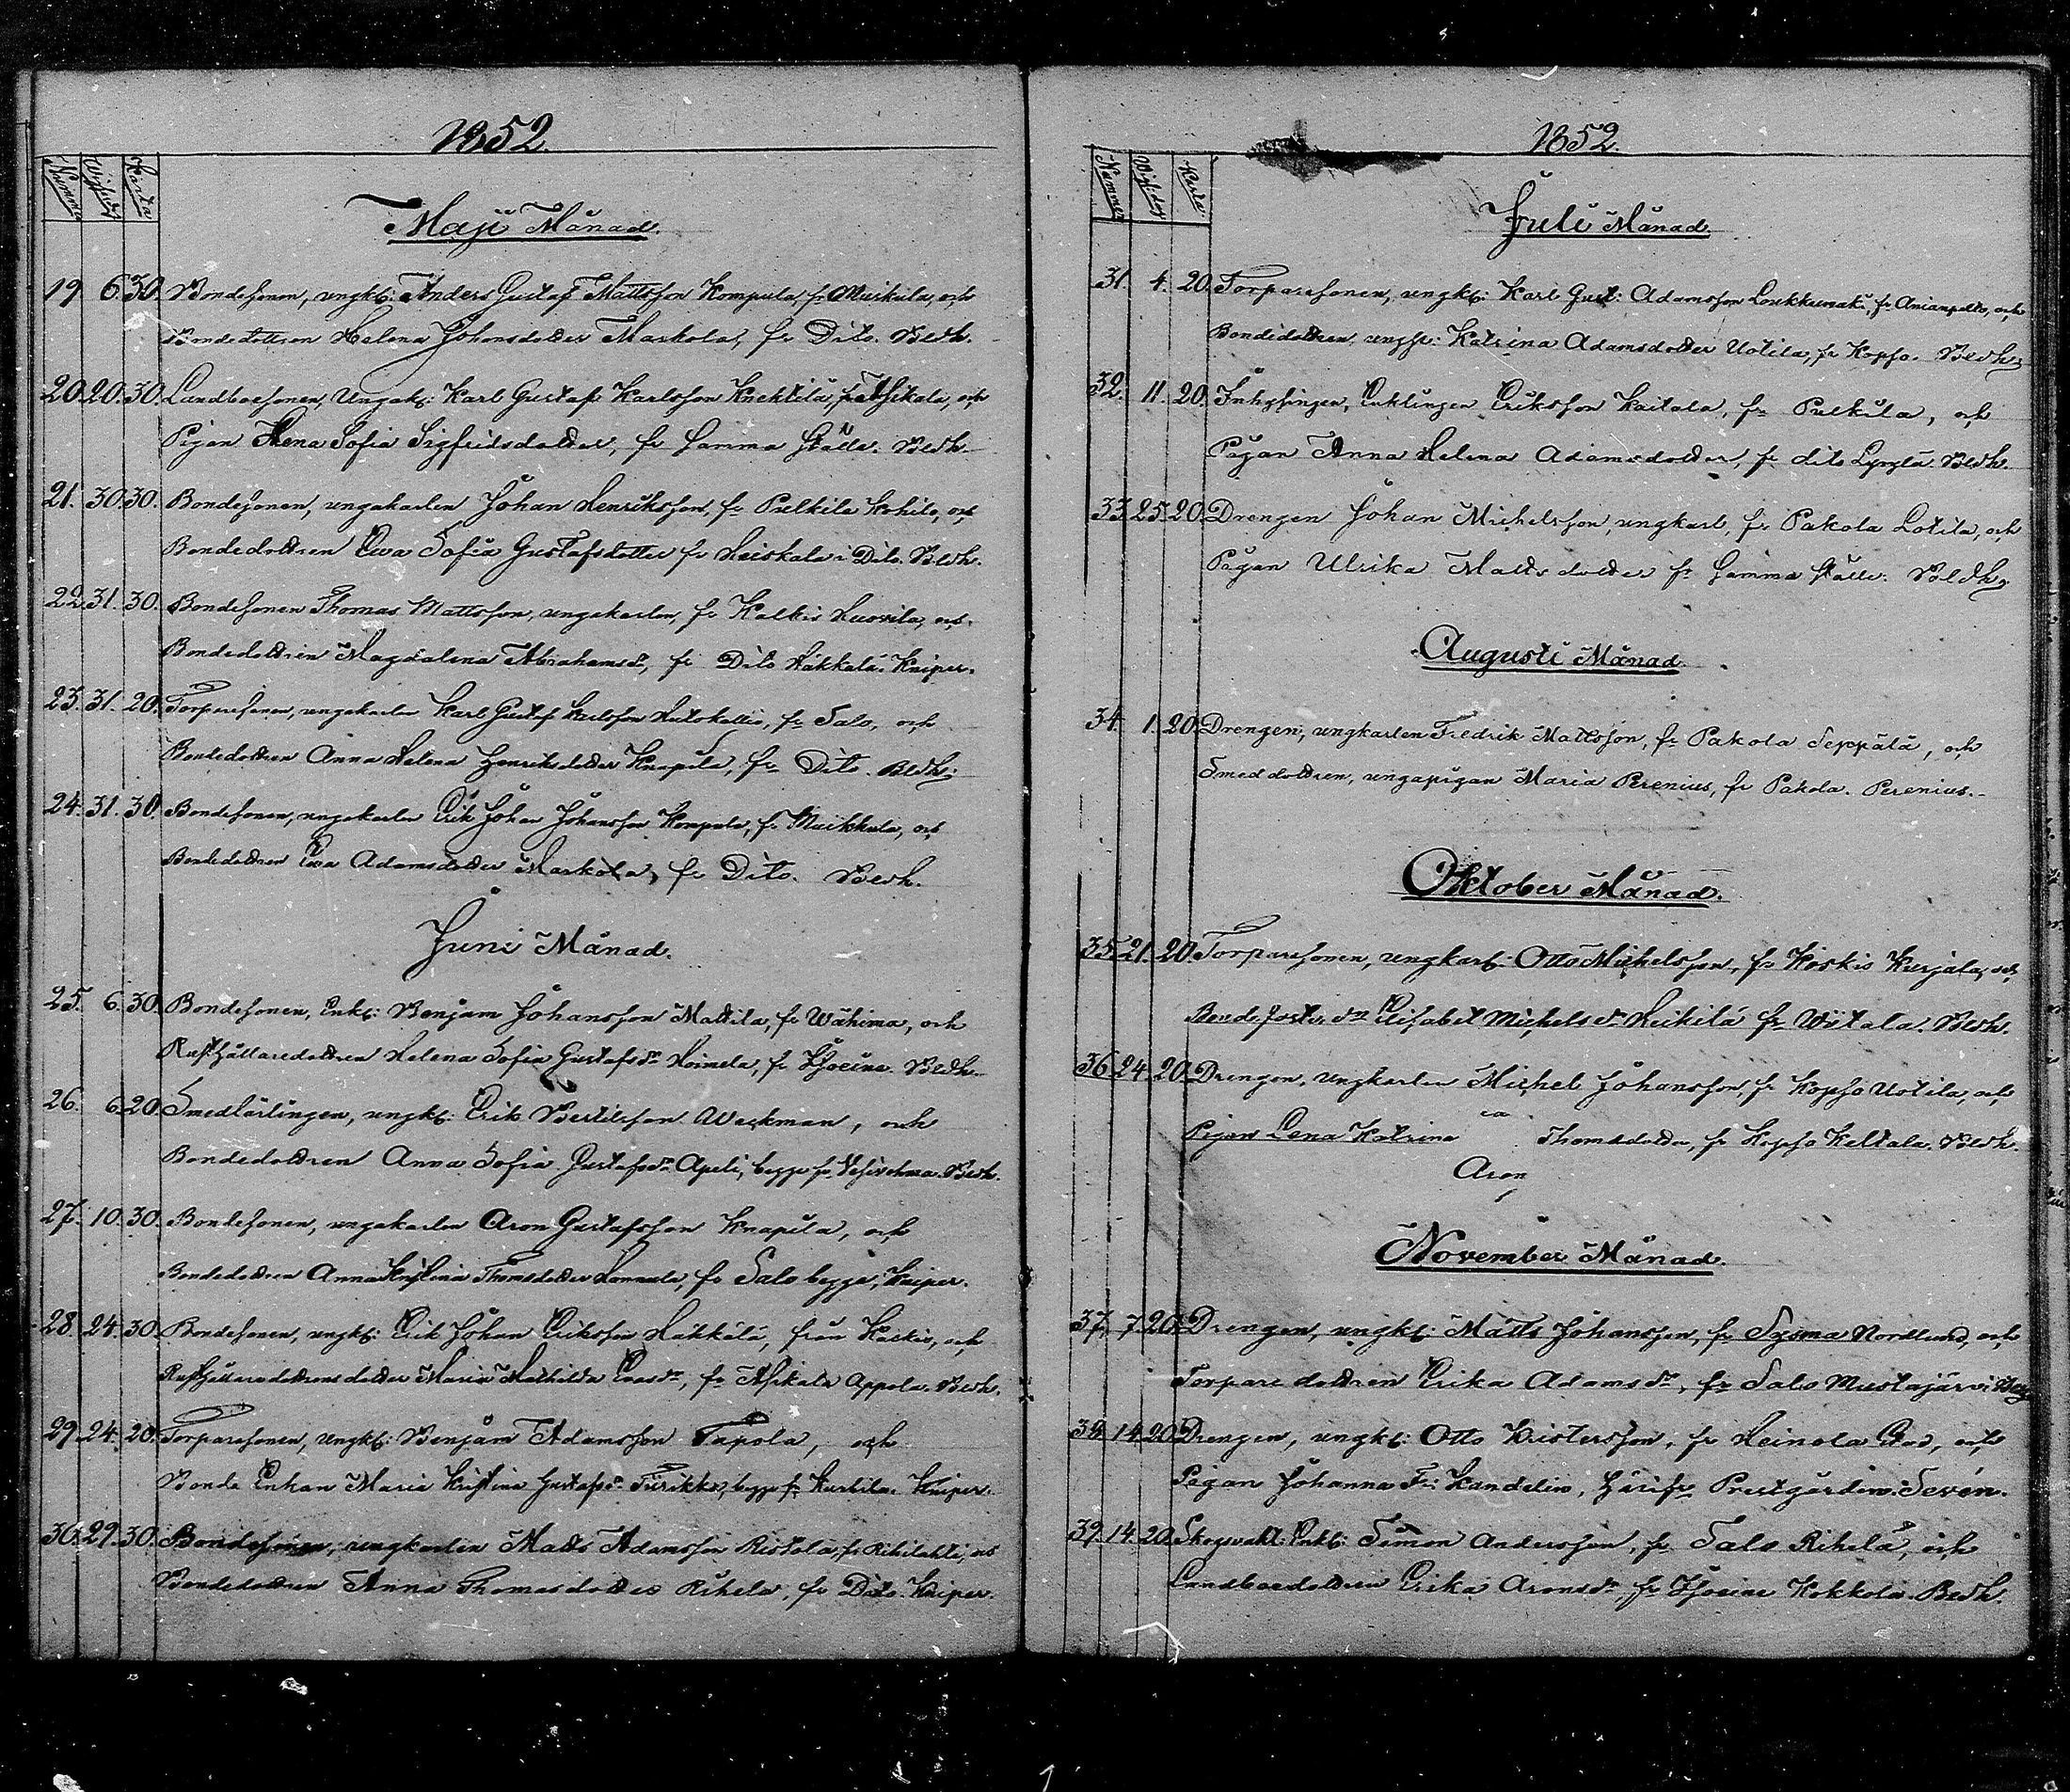 1852.
Nummer Vigseldag Karta
Maji Månad.
19. 6. 30. Bondesonen, ungk: Anders Gustaf Mattsson Kompula, fr. Muikula, och
Bondedottren Helena Johansdotter Markola, fr Dito. Bedh.
20. 20. 30. Landboesonen, Ungak: Karl Gustaf Karlsson Knektilä, fr Asikala, och
Pigan Lena Sofia Sigfridsdotter, fr samma ställe. Bedh.
21. 30. 30. Bondesonen, ungakarlen Johan Henriksson, fr Pulkila Kohila, och
Bondedottren Ewa Sofia Gustafsdotter fr Heiskala i Dito. Bedh.
22. 31. 30. Bondesonen Thomas Mattsson, ungakarlen, fr Kalkis Huovila, och
Bondedottren Magdalena Abrahamsdr, fr Dito Häkkälä. Kniper.
23. 31. 20. Torparesonen, ungakarlen Karl Gustaf Karlsson Hutokallio, fr Salo, och
Bondedottren Anna Helena Henriksdotter Knapila, fr Dito. Bedh.
24. 31. 30. Bondesonen, ungakarlen Erik Johan Johansson Kompula, fr Muikkula, och
Bondedottren Ewa Adamsdotter Markola, fr Dito. Bedh.
Juni Månad.
25. 6. 30. Bondesonen, Enkl: Benjam Johansson Mattila, fr Wähima, och
Rusthållaredottren Helena Sofia Gustafsdr Hoimela, fr Isoeine. Bedh.
26. 6. 20. Smedlärlingen, ungk: Erik Bertilsson Weckman, och
Bondedottren Anna Sofia Gustafsdr Apeli, begge fr Vesivehma. Bedh.
27. 10. 30. Bondesonen, ungakarlen Aron Gustafsson Knapila, och
Bondedottren Anna Kristina Thomsdotter, fr Salo begge, Kniper.
28. 24. 30. Bondesonen, ungk: Erik Johan Eriksson Häkkälä, från Kalkis, och
Rusthållaredottrens dotter Maria Mathilda Evasdr, fr Asikala Appola. Bedh.
29. 24. 20. Torparesonen, Ungk: Benjam Adamsson Tapola, och
Bonde Enkan Maria Kristina Gustafsdr Tiirikka, begge fr Kurhila. Kniper.
30. 29. 30. Bondesonen, ungkarlen Matts Adamsson Ristola, fr Riihilahti, och
Bondedottren Anna Thomasdotter Rihelä, fr Dito. Kniper.
1852.
Nummer Vigl. dag Karta
Juli Månad.
31. 4. 20. Torparesonen, ungk: Karl Gust: Adamsson Loukkumäki, fr Anianpelto, och
Bondedottren, ungpi: Katrina Adamsdotter Uotila, fr Kopso. Bedh.
32. 11. 20. Inhysingen, Enklingen Eriksson Kaitala, fr Pulkila, och
Pigan Anna Helena Adamsdotter, fr dito Lyyrlä. Bedh.
33. 25. 20. Drengen Johan Michelsson, ungkarl, fr Pakola Lotila, och
Pigan Ulrika Mattsdotter fr samma ställe. Bedh.
Augusti Månad.
34. 1. 20. Drengen, ungkarlen Fredrik Mattsson, fr Pakola Seppälä, och
Smeddottren, ungapigan Maria Perenius, fr Pakola. Perenius.
Oktober Månad.
35. 21. 20. Torparesonen, ungkarl: Otto Michelsson, fr Koskis Kurjala, och
Elisabet Michelsdr Heikilä fr Wiitala. Bedh.
36. 24. 20. Drengen, Ungkarlen Michel Johansson, fr Kopso Uotila, och
Pigan Lena Katrina Thomsdotter, fr Kopso Keltala. Bedh.
Aron
November Månad.
37. 7. 20. Drengen, ungk: Matts Johansson, fr Sysmä Nordlund, och
Torparedottren Erika Adamsdr, fr Salo Mustajärvi
38. 14. 20. Drengen, ungk: Otto Kristersson, fr Heinola Stad, och
Pigan Johanna Fr: Kandelin, härifr. Prestgården. Sevón.
39. 14. 20. Skogsvakt. Enkl: Simon Andersson, fr Salo Rihelä, och
Landboedottren Erika Aronsdr, fr Isoeine Kokkola. Bedh.